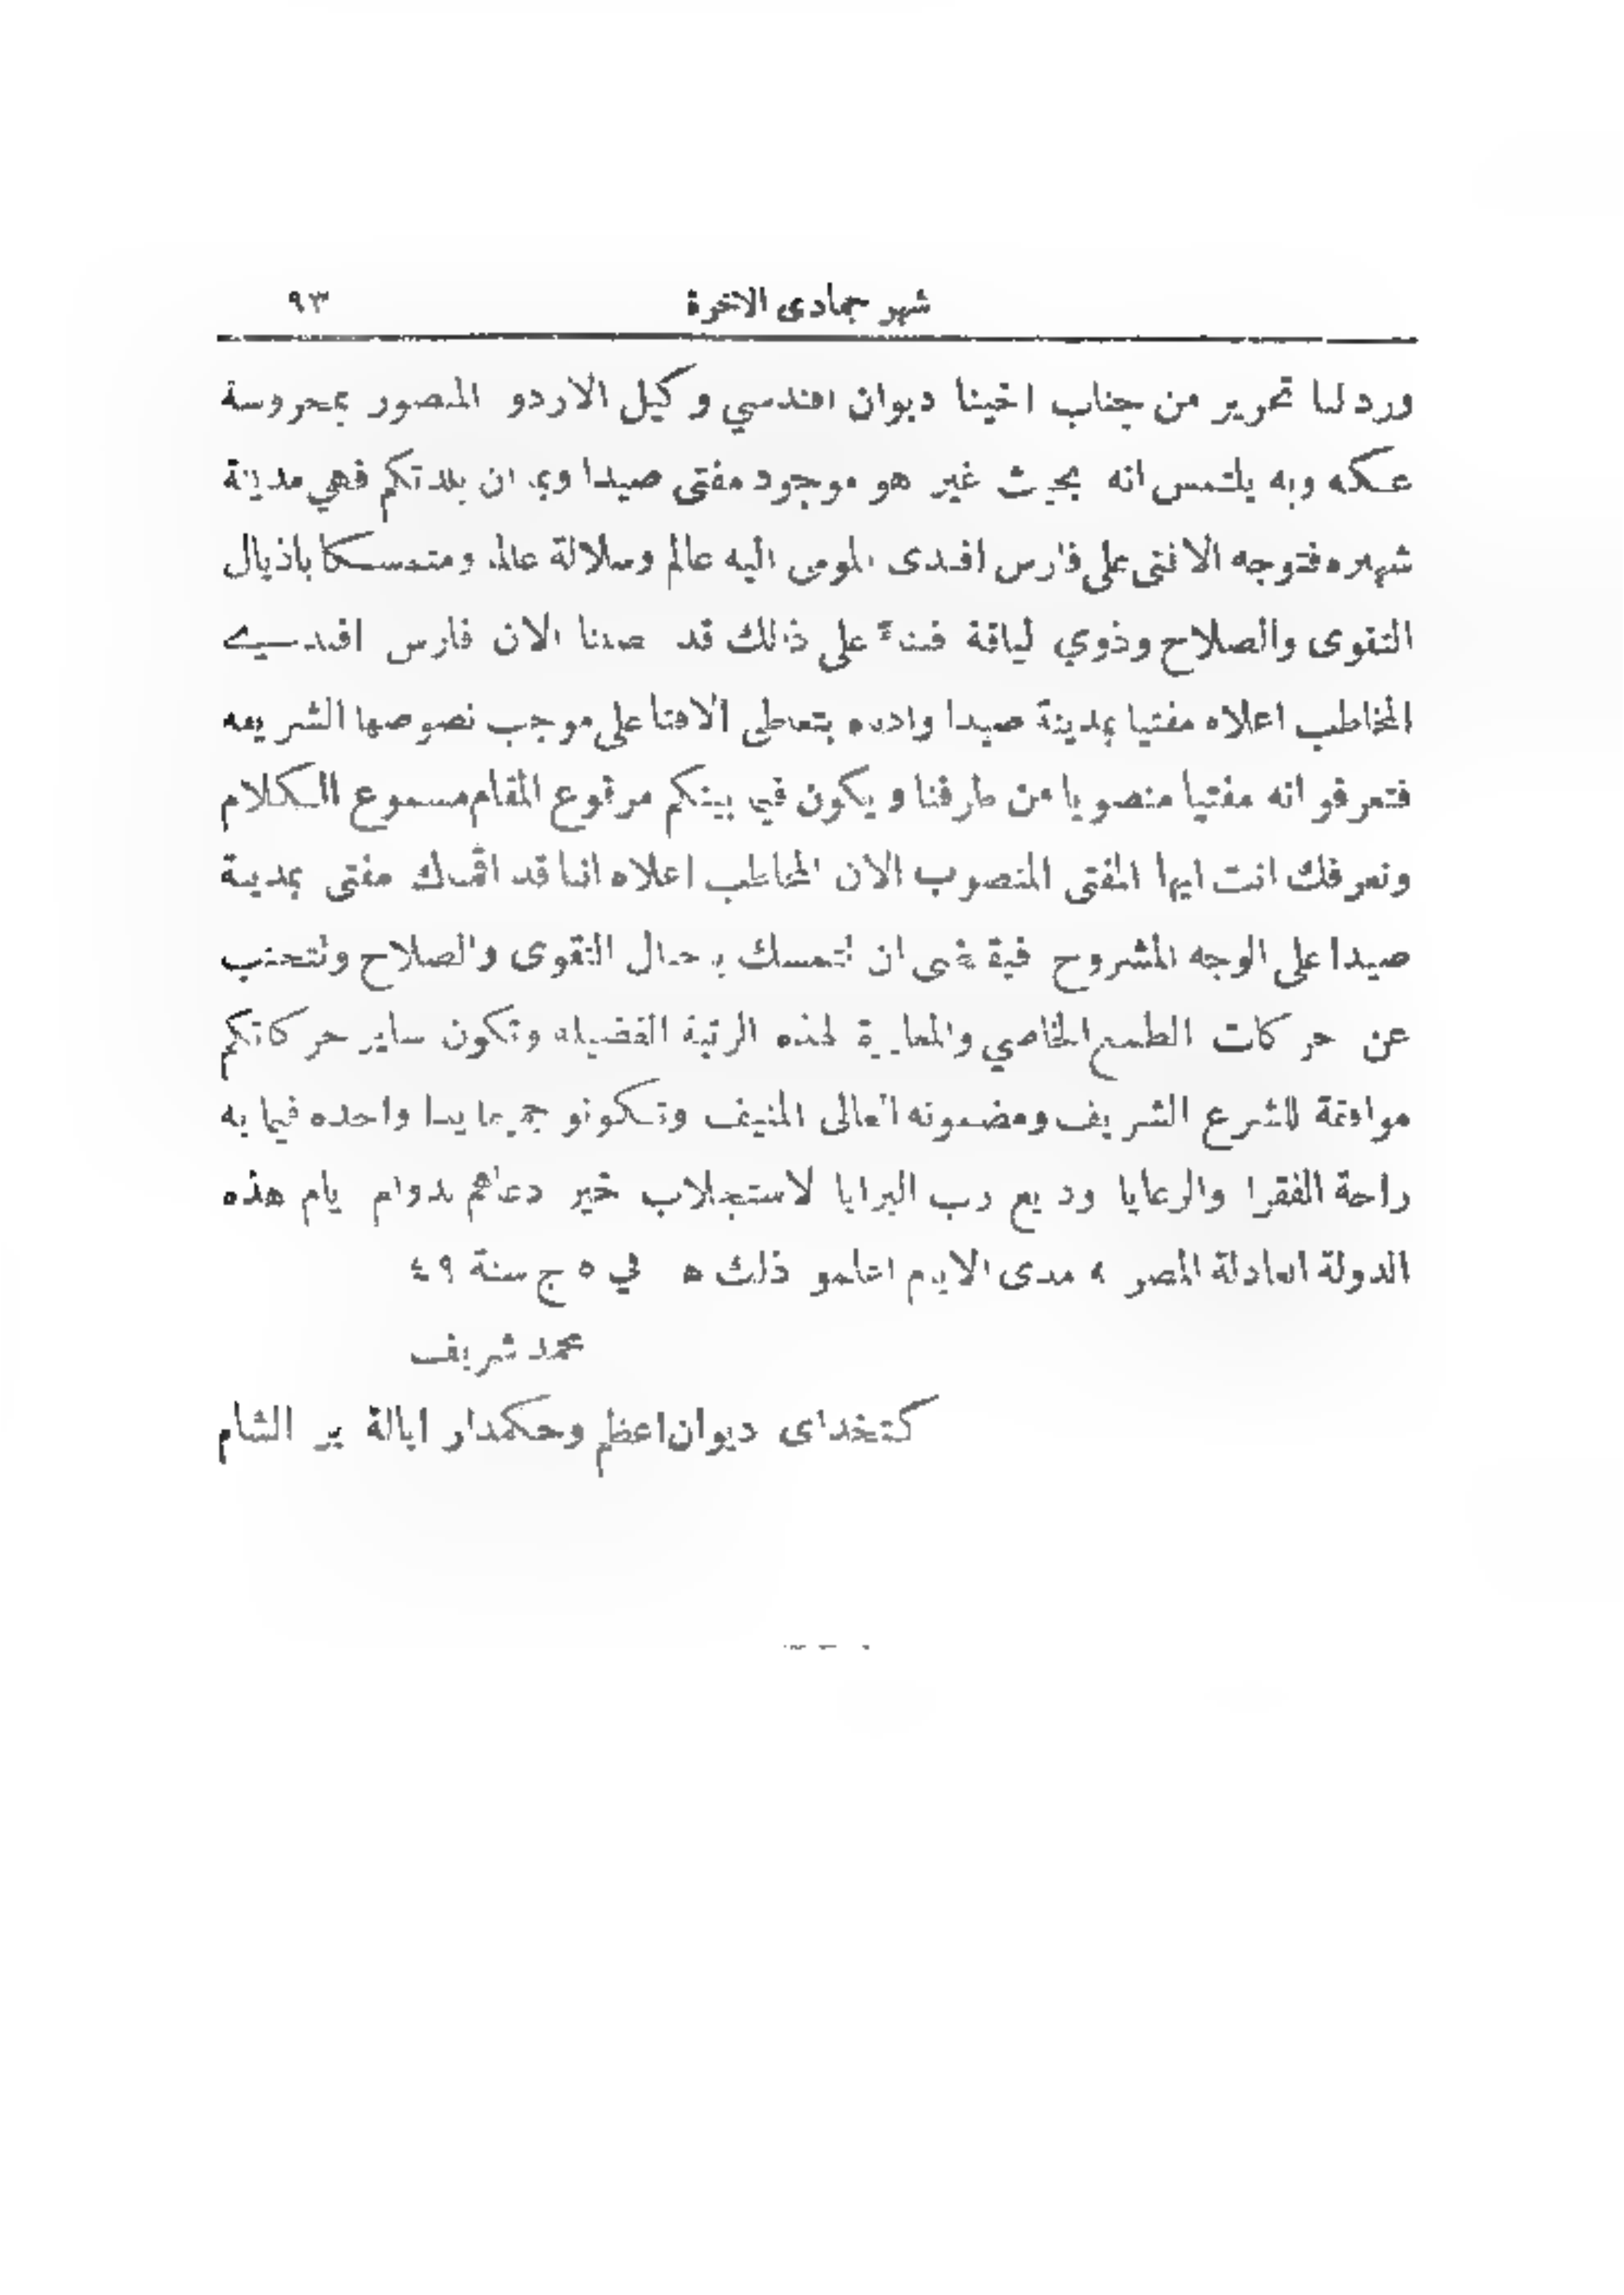 شهر جمادى الاخرة ٩٣
ورد لنا تحرير من جناب اخينا ديوان افندسي وكيل الاردو المنصور بمحروسة
عكه وبه يلتمس انه بحيث غير هو موجود مفتى صيدا وبما ان بلدتكم فهي مدينة
شهيره فتوجه الافتى على فارس افندى المومى اليه عالم وسلالة عالم ومتمسكا باذيال
التقوى والصلاح وذوي لياقة فبناءً على ذالك قد نصبنا الان فارس افندسي
المخاطب اعلاه مفتيا بمدينة صيدا يتعاطى الافتا على موجب نصوصها الشريعه
فتعرفو انه مفتيا منصوبا من طرفنا ويكون في بينكم مرفوع المقام مسموع الكلام
ونعرفك انت ايها المفتى المنصوب الان المخاطب اعلاه اننا قد اقمناك مفتى بمدينة
صيدا على الوجه المشروح فيقتضى ان تتمسك بحبال التقوى والصلاح ولتجنب
عن حركات الطمع الخاصي والمغايرة لهذه الرتبة الفضيله وتكون ساير حركاتكم
موافقة للشرع الشريف ومضمونه العالى المنيف وتكونو جميعا يدا واحده فيما به
راحة الفقرا والرعايا وديع رب البرايا لاستجلاب خير دعاهم بدوام ايام هذه
الدولة العادلة المصريه مدى الايام اعلمو ذلك ه في ٥ ج سنة ٤٩
محمد شريف
كتخداى ديوان اعظم وحكمدار ايالة بر الشام